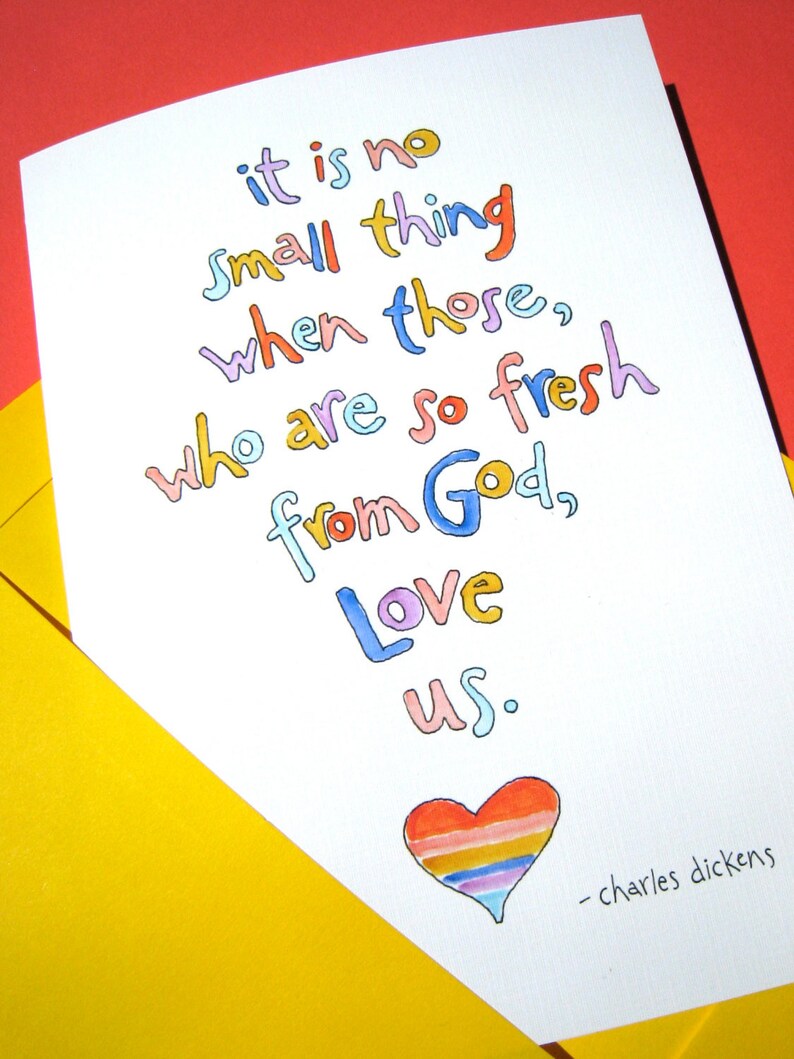 it is no
small thing
when those,
who are so fresh
from God,
Love
us.
- charles dickens